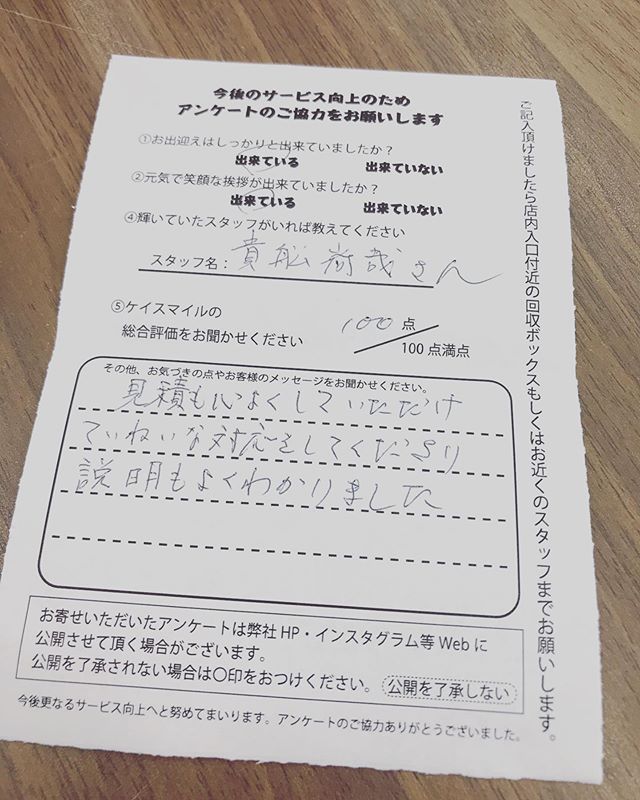 今後のサービス向上のため
アンケートのご協力をお願いします
①お出迎えはしっかりと出来ていましたか？
出来ている 出来ていない
②元気で笑顔な挨拶が出来ていましたか？
出来ている 出来ていない
④輝いていたスタッフがいれば教えてください
スタッフ名：貴船尚哉さん
⑤ケイスマイルの
総合評価をお聞かせください
100点
100点満点
その他、お気づきの点やお客様のメッセージをお聞かせください。
見積も心よくしていただけ
ていねいな対応をしてくださり
説明もよくわかりました
お寄せいただいたアンケートは弊社HP・インスタグラム等Webに
公開させて頂く場合がございます。
公開を了承されない場合は〇印をおつけください。 公開を了承しない
今後更なるサービス向上へと努めてまいります。アンケートのご協力ありがとうございました。
ご記入頂けましたら店内入口付近の回収ボックスもしくはお近くのスタッフまでお願いします。